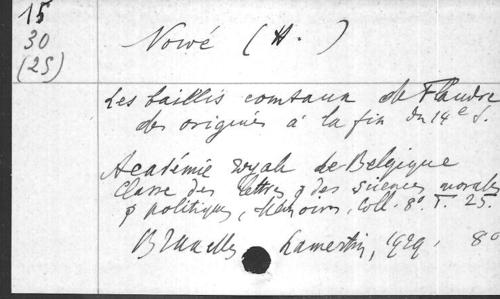 15
30
(25)
Nowé (H.)
Les baillis comtaux de Flandre
des origines à la fin du 14e s.
Académie royale de Belgique
Classe des lettres & des sciences morales
& politiques, Mémoires, Coll. 8°. T. 25.
Bruxelles Lamertin, 1929. 8°